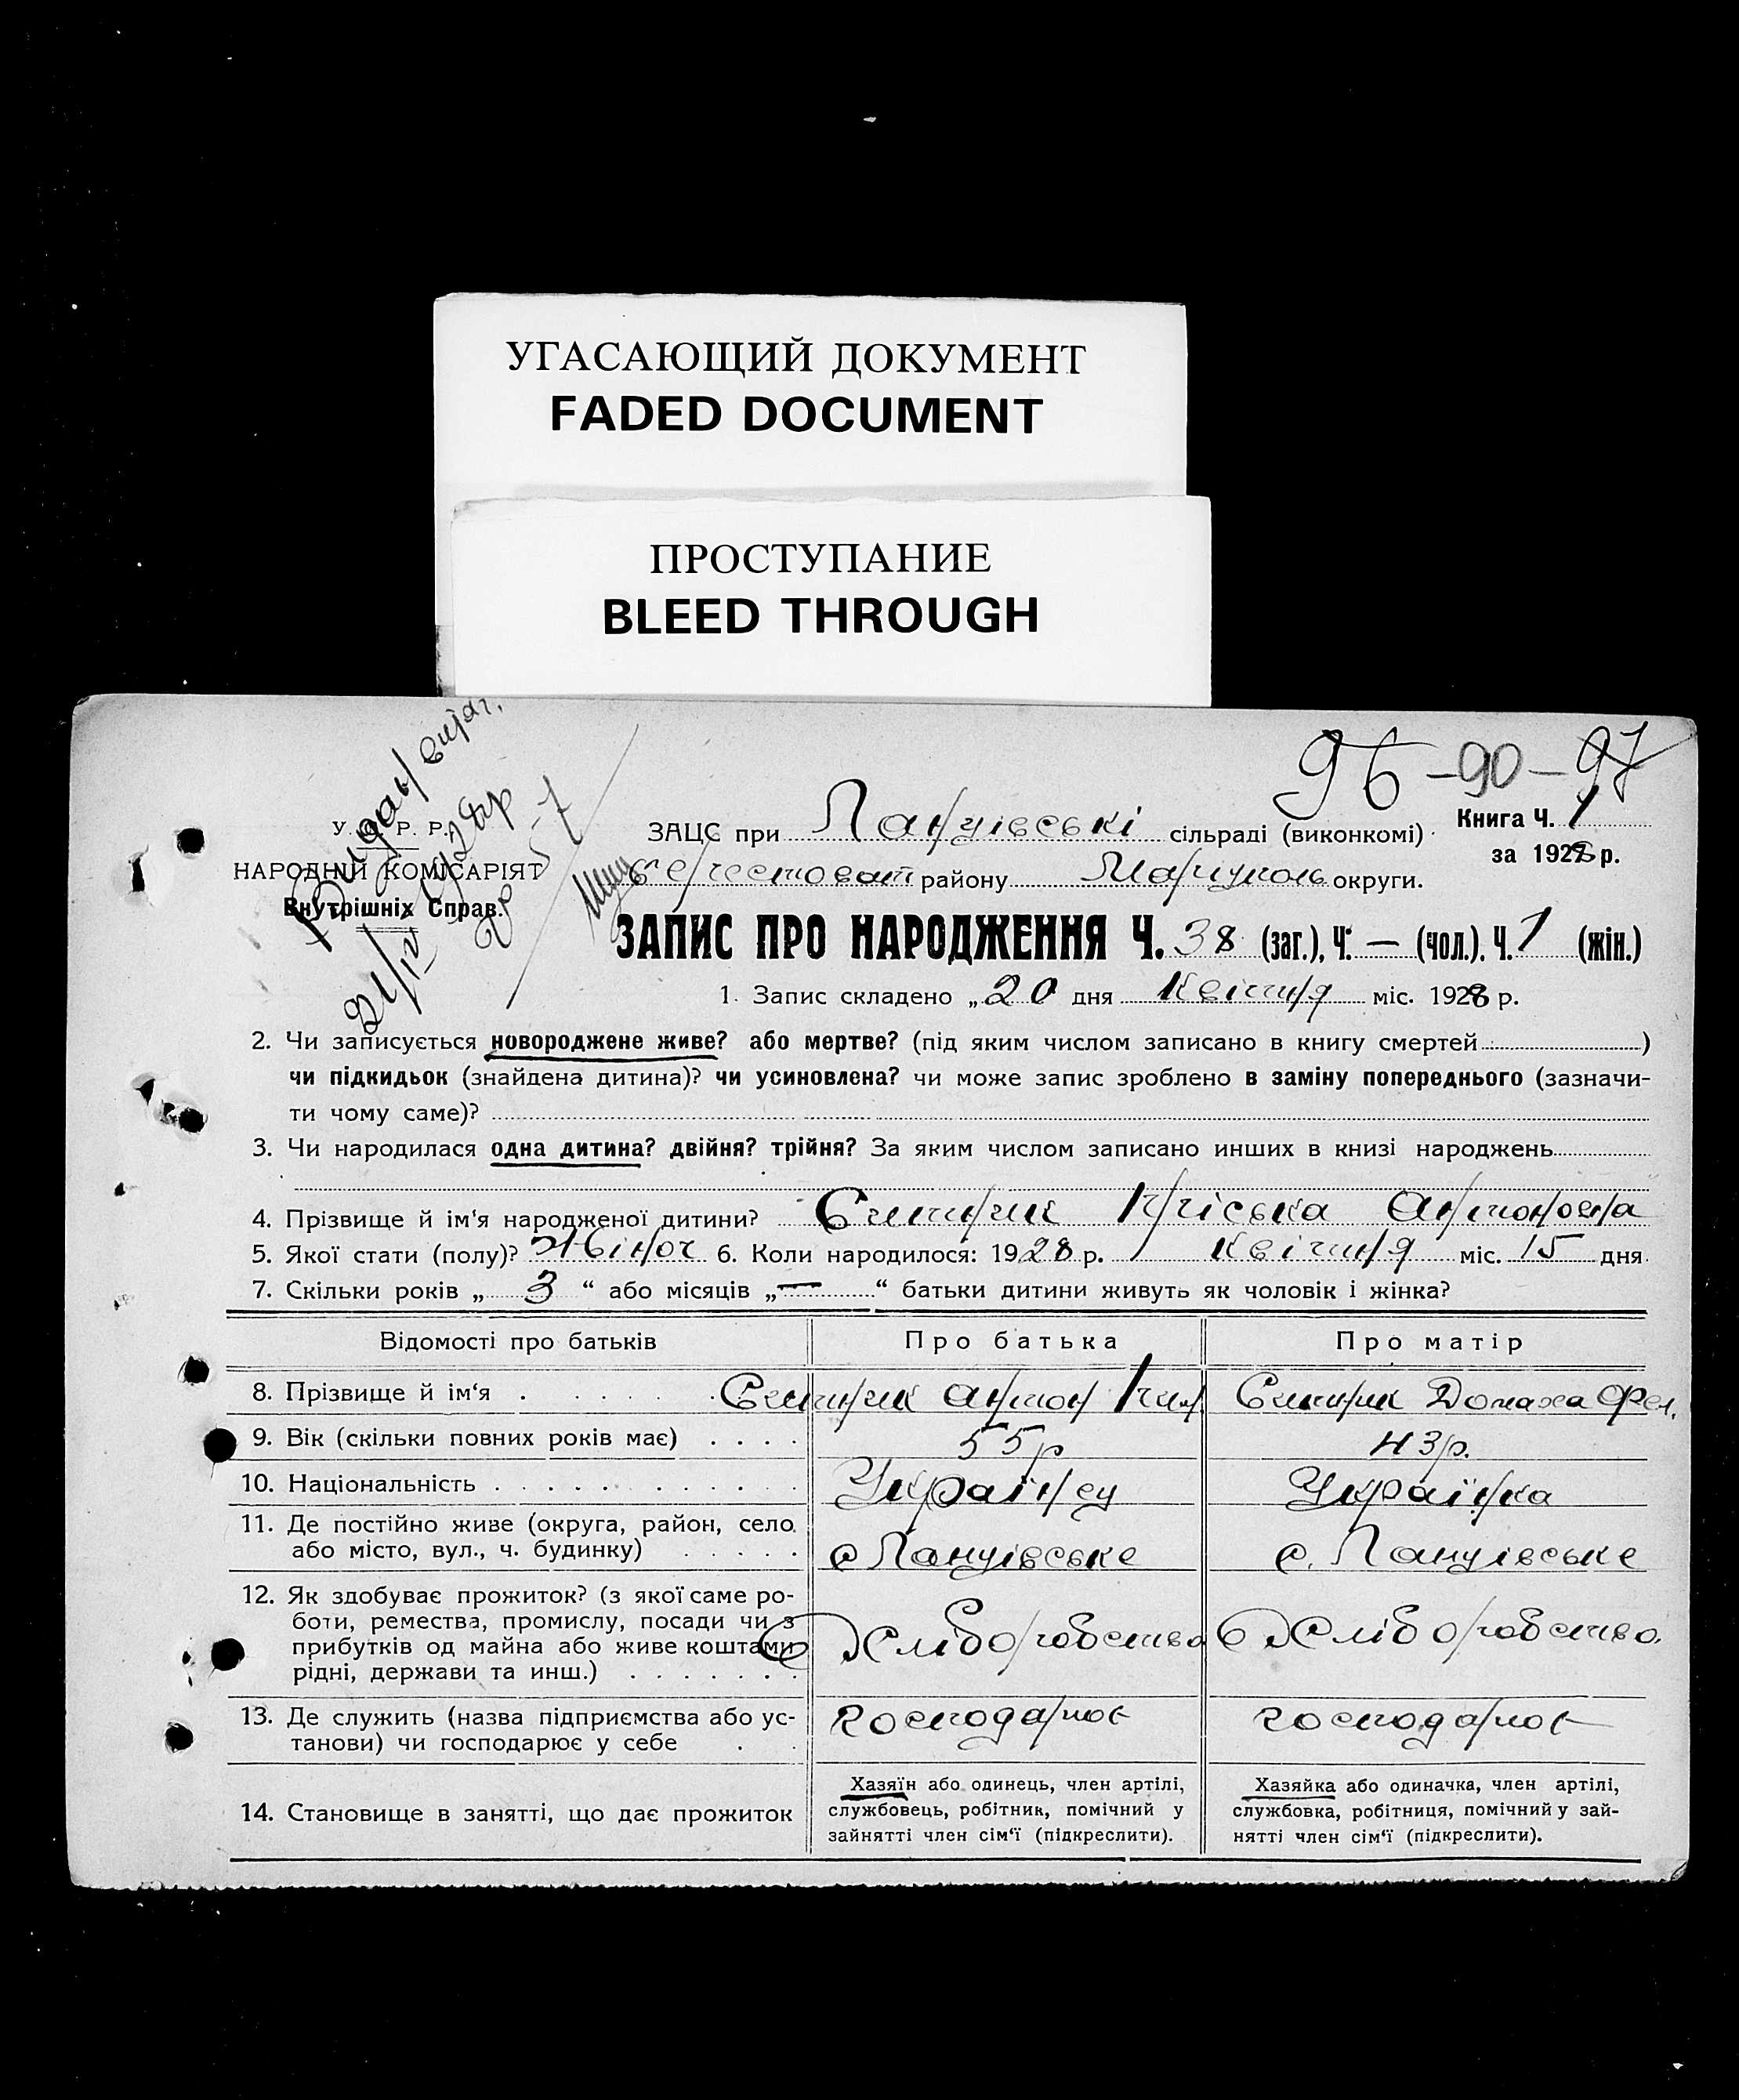 УГАСАЮЩИЙ ДОКУМЕНТ
FADED DOCUMENT
ПРОСТУПАНИЕ
BLEED THROUGH
96 – 90 – 97
У. С. Р. Р.
НАРОДНІЙ КОМІСАРІЯТ
Внутрішніх Справ.
ЗАЦС при Ланцівські сільраді (виконкомі)
Книга Ч. 1
за 1928 р.
району Маріуполь округи.
ЗАПИС ПРО НАРОДЖЕННЯ Ч. 38 (заг.), Ч. — (чол.). Ч. 1 (жін.)
1. Запис складено „20 дня Квітня міс. 1928 р.
2. Чи записується новороджене живе? або мертве? (під яким числом записано в книгу смертей )
чи підкидьок (знайдена дитина)? чи усиновлена? чи може запис зроблено в заміну попереднього (зазначи-
ти чому саме)?
3. Чи народилася одна дитина? двійня? трійня? За яким числом записано инших в книзі народжень
4. Прізвище й ім‘я народженої дитини? Антоновна
5. Якої стати (полу)? Жіноч 6. Коли народилося: 1928 р. Квітня міс. 15 дня
7. Скільки років „ 3 “ або місяців „ — “ батьки дитини живуть як чоловік і жінка?
Відомості про батьків Про батька Про матір
8. Прізвище й ім‘я Антон Домаха
9. Вік (скільки повних років має) 55р 43р.
10. Національність Українец Українка
11. Де постійно живе (округа, район, село
або місто, вул., ч. будинку) с Ланцівське с. Ланцівське
12. Як здобуває прожиток? (з якої саме ро-
боти, ремества, промислу, посади чи з
прибутків од майна або живе коштами
рідні, держави та инш.) Хліборобство Хліборобство
13. Де служить (назва підприємства або ус-
танови) чи господарює у себе
14. Становище в занятті, що дає прожиток
Хазяїн або одинець, член артілі,
службовець, робітник, помічний у
зайнятті член сім‘ї (підкреслити).
Хазяйка або одиначка, член артілі,
службовка, робітниця, помічний у зай-
нятті член сім‘ї (підкреслити).